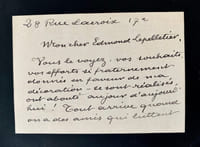 28 Rue Lacroix 17e
Mon cher Edmond Lepelletier,
Vous le voyez, vos souhaits,
vos efforts si fraternellement
donnés en faveur de ma
décoration — se sont réalisés,
ont abouti aujourd'aujourd'
hui ! Tout arrive quand
on a des amis qui luttent